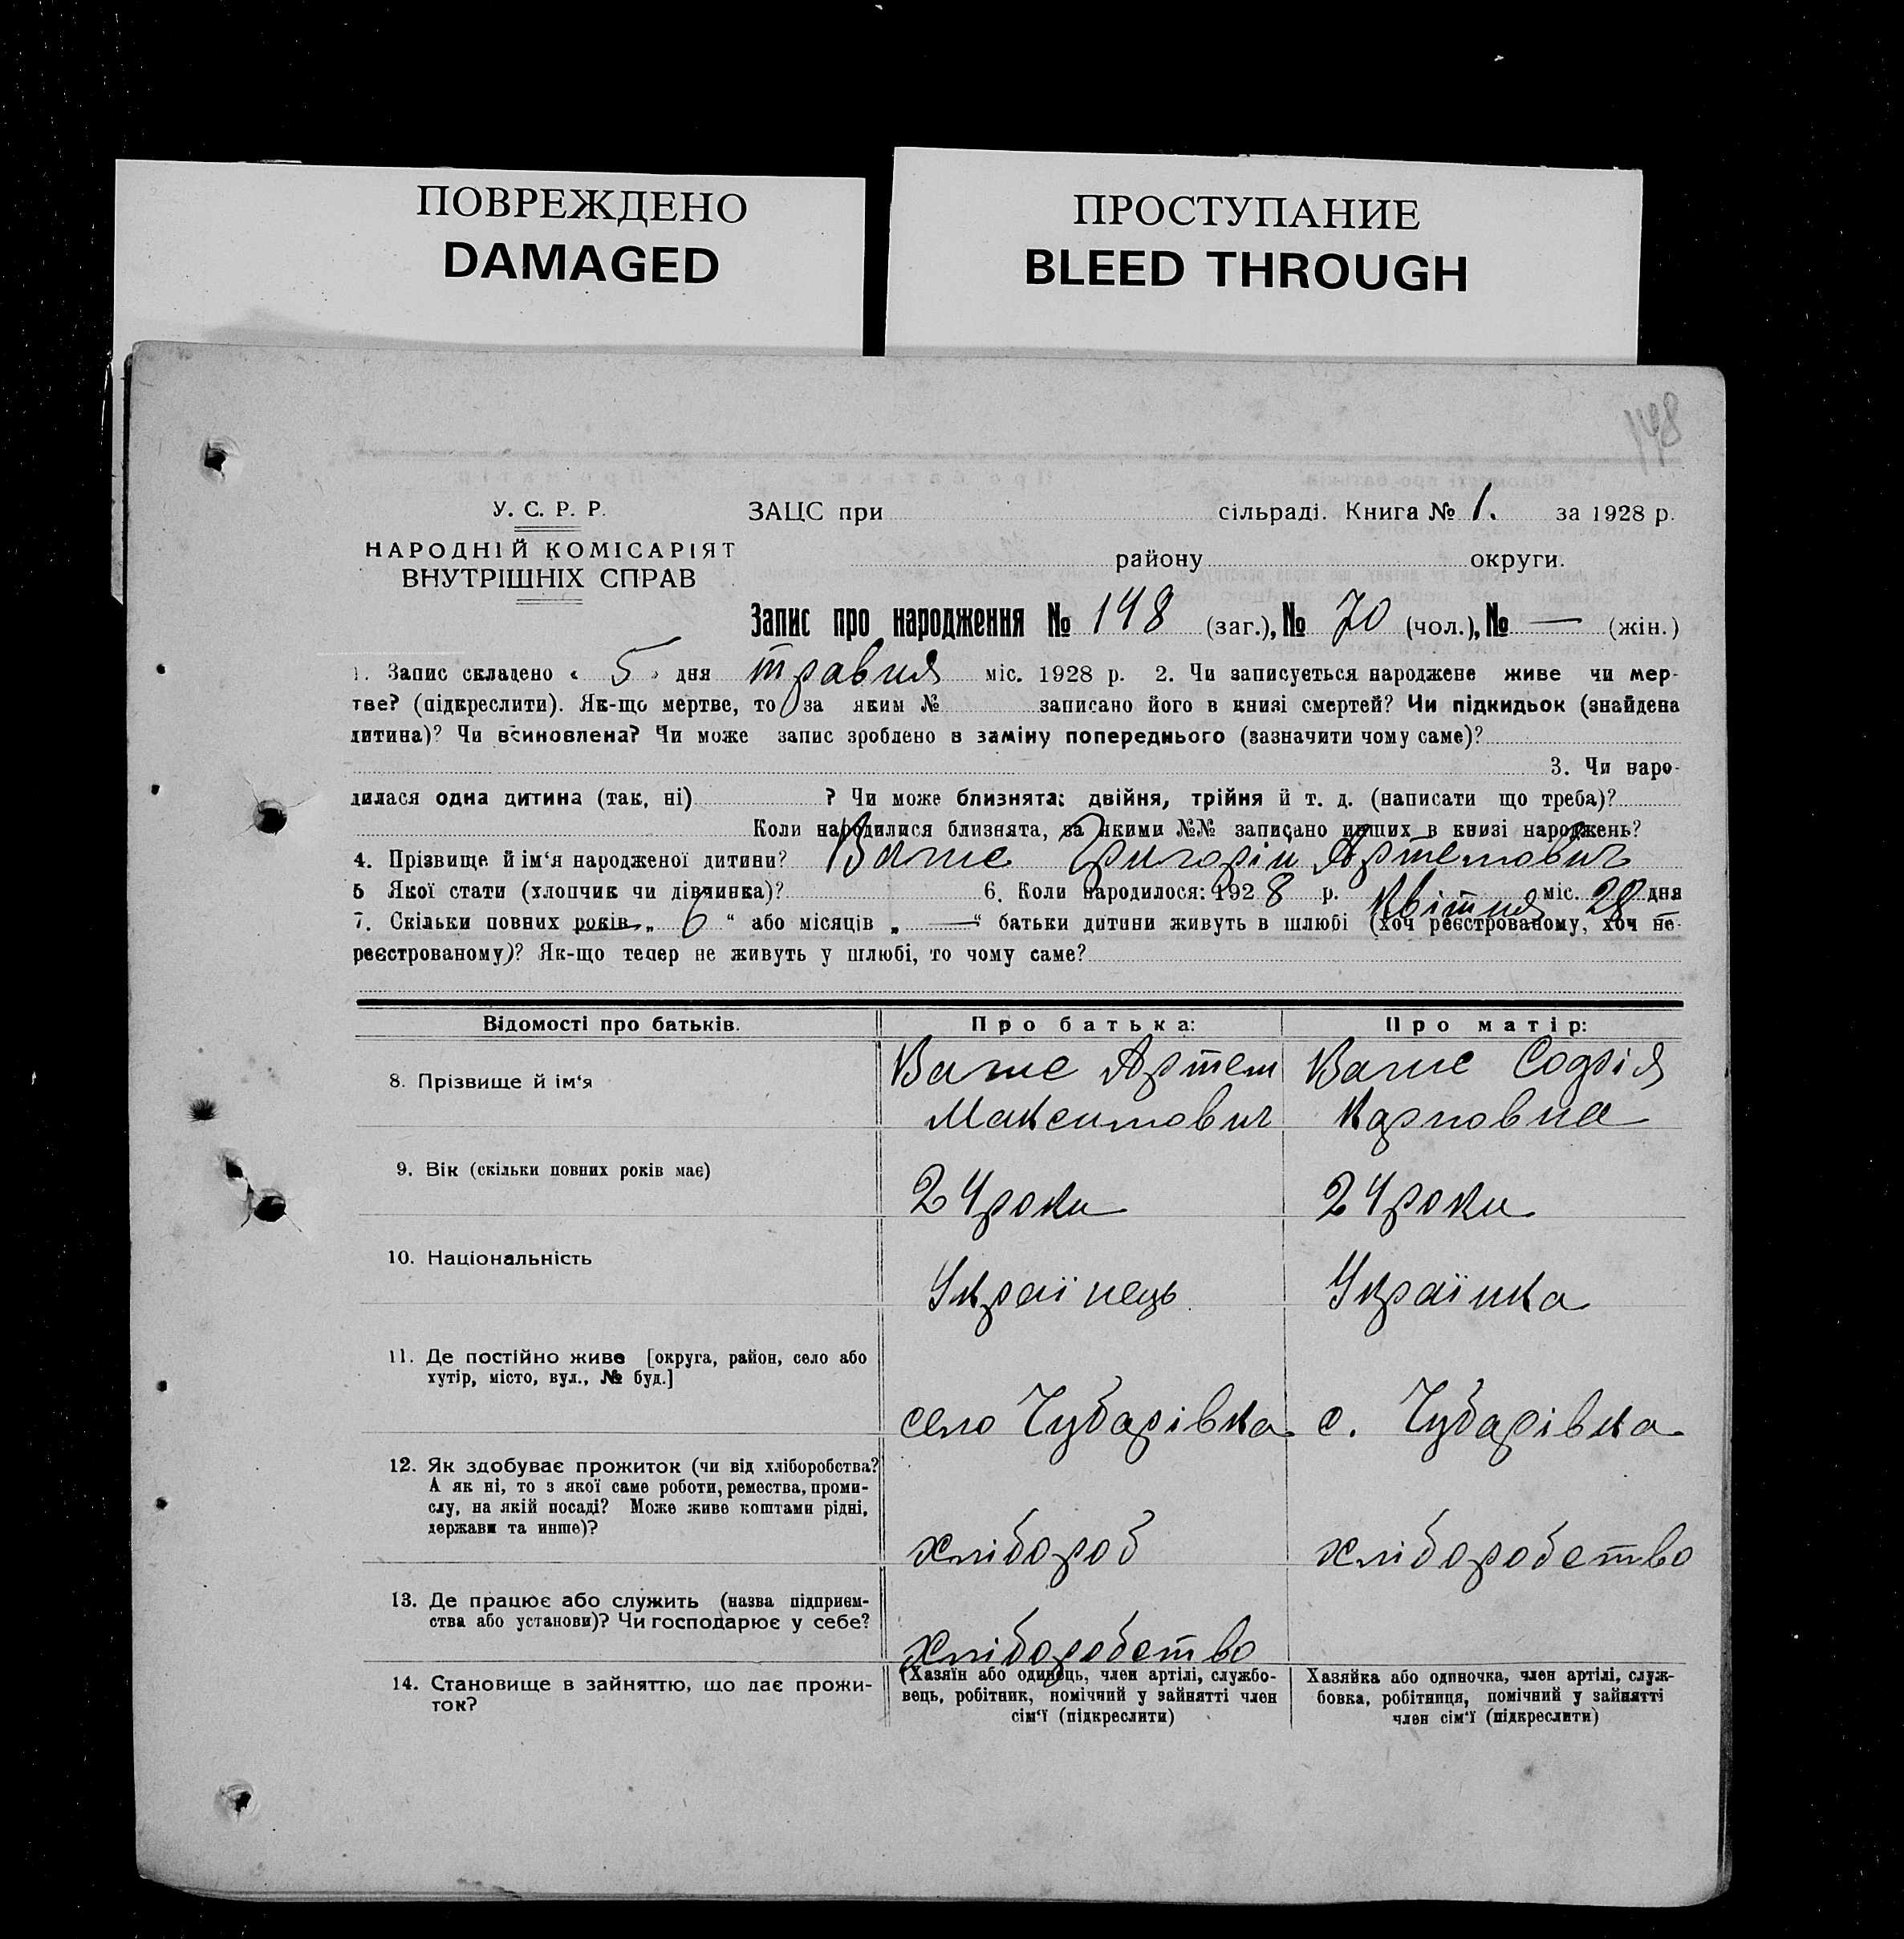 ПОВРЕЖДЕНО
DAMAGED
ПРОСТУПАНИЕ
BLEED THROUGH
148
У. С. Р. Р.
НАРОДНІЙ КОМІСАРІЯТ
ВНУТРІШНІХ СПРАВ
ЗАЦС при сільраді. Книга № 1. за 1928 р.
району округи.
Запис про народження № 148 (заг.), № 70 (чол.), № — (жін.)
1. Запис складено « 5 » дня травня міс. 1928 р. 2. Чи записується народжене живе чи мер-
тве? (підкреслити). Як-що мертве, то за яким № записано його в книзі смертей? Чи підкидьок (знайдена
дитина)? Чи всиновлена? Чи може запис зроблено в заміну попереднього (зазначити чому саме)?
3. Чи наро-
дилася одна дитина (так, ні) ? Чи може близнята: двійня, трійня й т. д. (написати що треба)?
Коли народилися близнята, за якими №№ записано инших в книзі народжень?
4. Прізвище й ім‘я народженої дитини? Ваше Григорій Артемович
5 Якої стати (хлопчик чи дівчинка)? 6. Коли народилося: 1928 р. Квітня міс. 28 дня
7. Скільки повних років „ 6 “ або місяців „ — “ батьки дитини живуть в шлюбі (хоч реєстрованому, хоч не-
реєстрованому)? Як-що тепер не живуть у шлюбі, то чому саме?
Відомості про батьків. Про батька: Про матір:
8. Прізвище й ім‘я Ваше Артем Ваше Софія
Максимович Карповна
9. Вік (скільки повних років має) 24 роки 24 роки
10. Національність Українець Українка
11. Де постійно живе [округа, район, село або
хутір, місто, вул., № буд.]
село Чубарівка с. Чубарівка
12. Як здобуває прожиток (чи від хліборобства?
А як ні, то з якої саме роботи, ремества, проми-
слу, на якій посаді? Може живе коштами рідні,
держави та инше)?
хлібороб хліборобство
13. Де працює або служить (назва підприєм-
ства або установи)? Чи господарює у себе?
хліборобство
14. Становище в зайняттю, що дає прожи-
ток?
(Хазяїн або одинець, член артілі, службо-
вець, робітник, помічний у зайнятті член
сім‘ї (підкреслити)
Хазяйка або одиночка, член артілі, служ-
бовка, робітниця, помічний у зайнятті
член сім‘ї (підкреслити)